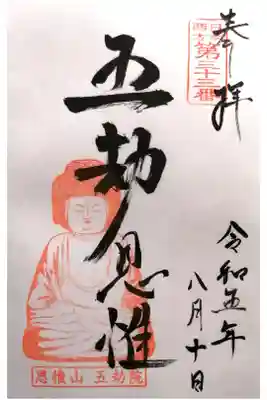 奉拝
第三十三番
五劫思惟
令和五年
八月十日
思惟山 五劫院